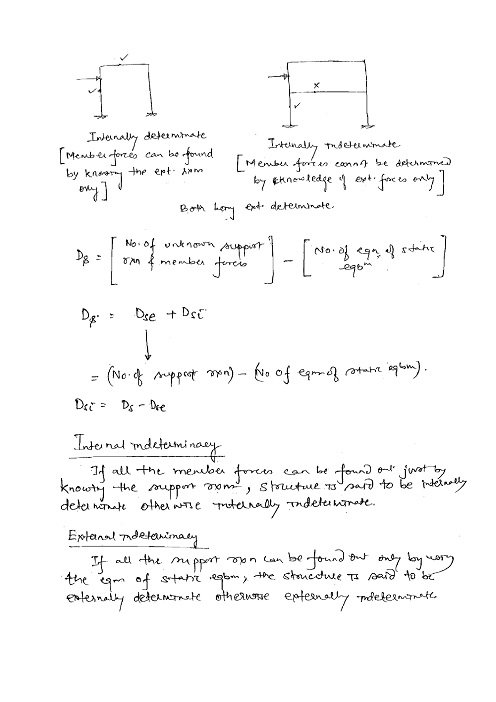 Internally determinate
[Member forces can be found
by knowing the ext. rxn
only]
Internally indeterminate
[Member forces cannot be determined
by knowledge of ext. forces only]
Both being ext. determinate.
Ds = [No. of unknown support rxn & member forces] - [No. of eqn of static eqbm]
Ds = Dse + Dsi
= (No. of support rxn) - (No of eqn of static eqbm).
Dsi = Ds - Dse
Internal indeterminacy
If all the member forces can be found out just by
knowing the support rxns, structure is said to be internally
determinate otherwise internally indeterminate.
External indeterminacy
If all the support rxn can be found out only by using
the eqn of static eqbm, the structure is said to be
externally determinate otherwise externally indeterminate